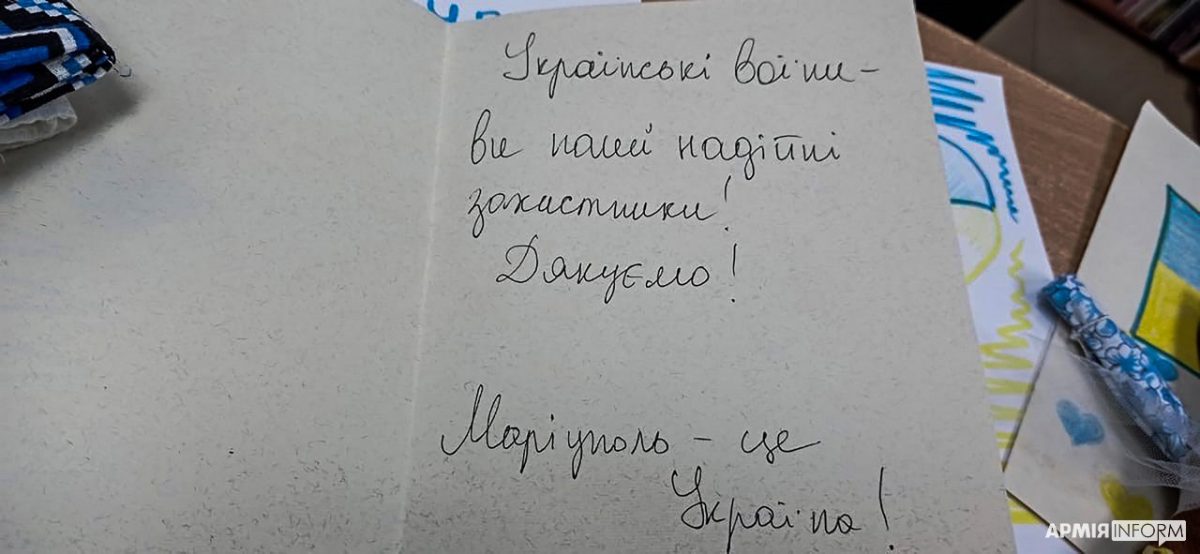 Українські воїни –
ви нашей надійні
захастники!
Дякуємо!
Маріуполь – це
Україна!
АРМІЯINFORM